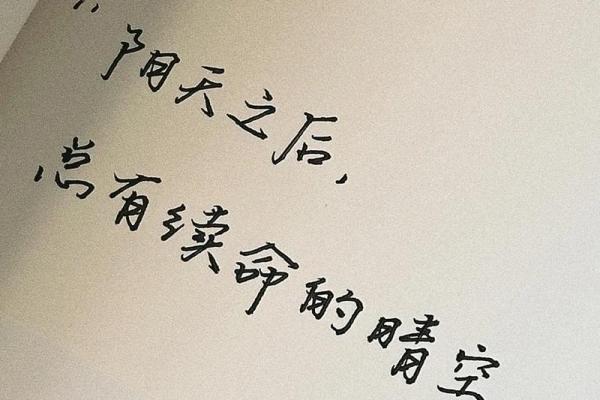 阴天之后，
总有续命的晴空